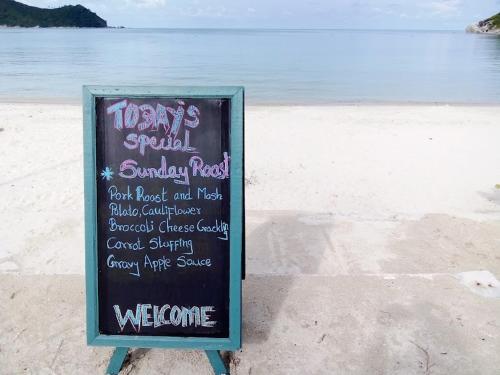 TODAY'S
special
* Sunday Roast
Pork Roost and Mash
Potato, Cauliflower
Broccoli Cheese Crackling
Carrot Stuffing
Gravy Apple Souce
WELCOME